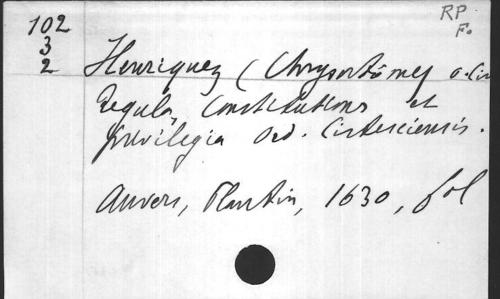 RP
Fo
102
3
2
Henriquez (Chrysostôme) o. Cir
Regula, Constitutions et
privilegia Ord. Cisterciensis.
Anvers, Plantin, 1630, fol